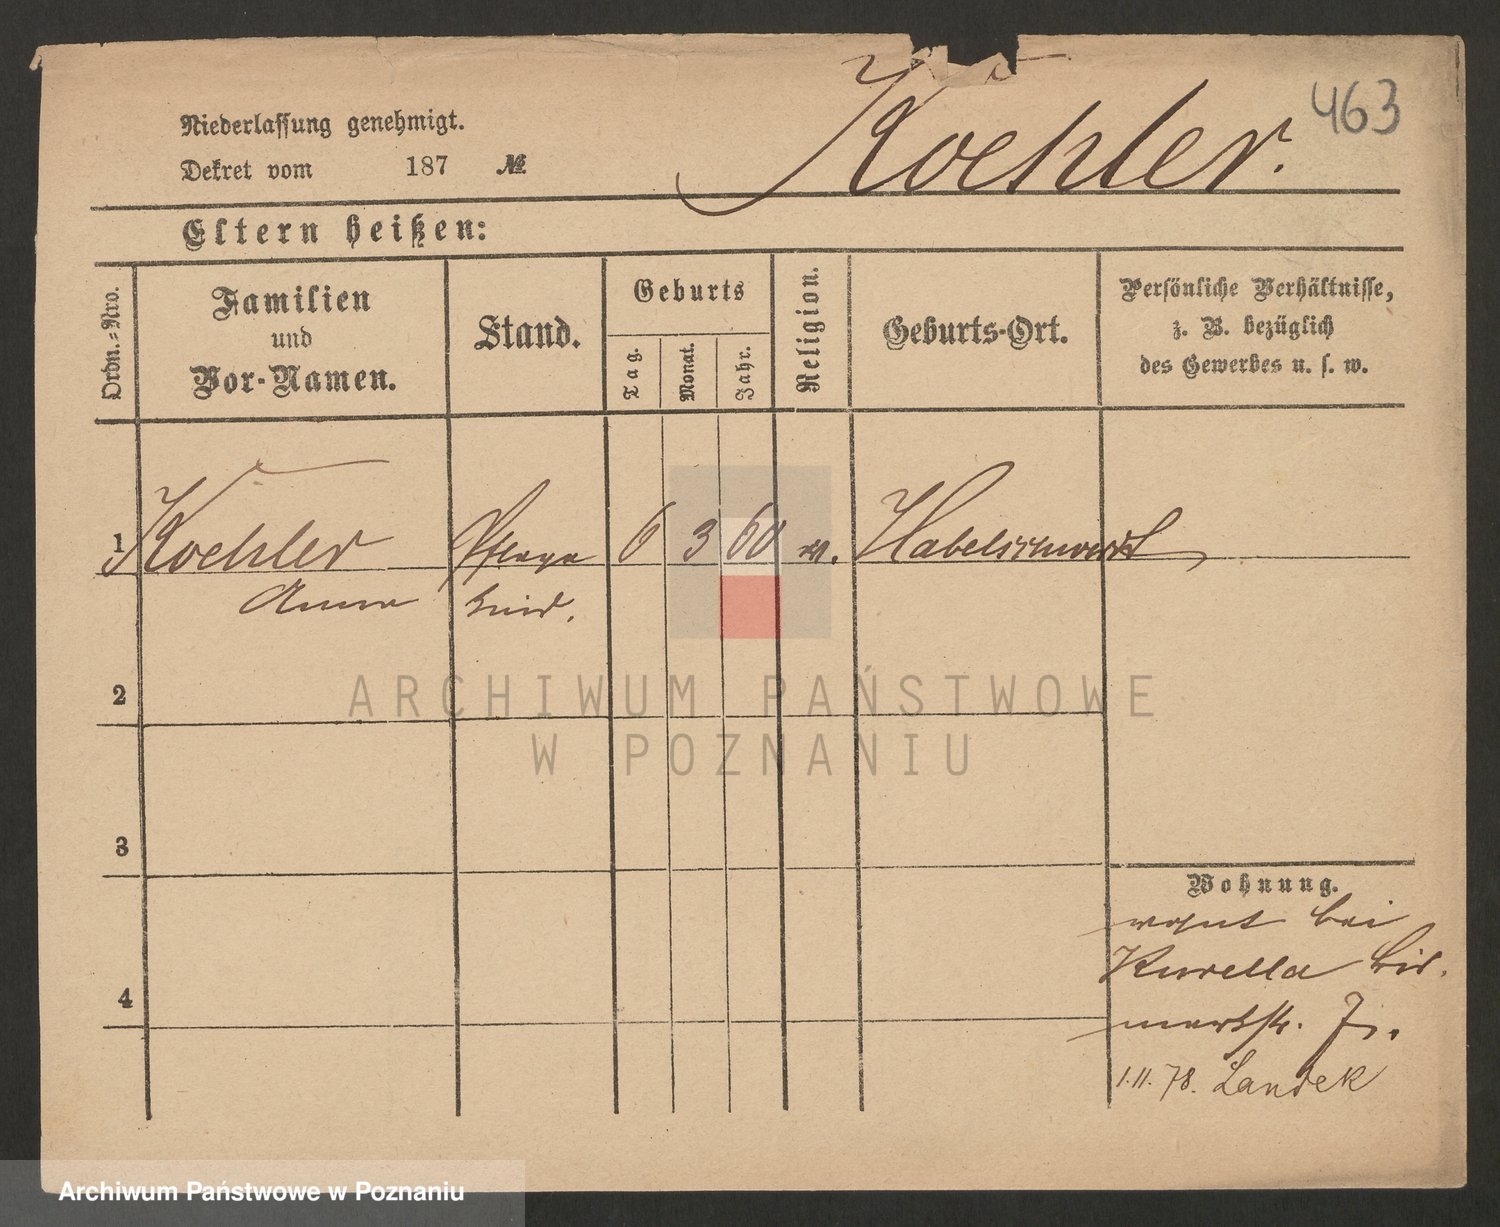 463
Koehler.
Niederlassung genehmigt.
Dekret vom 187 №
Eltern heißen:
Ordn.-Nro.
Familien
und
Vor-Namen.
Stand.
Geburts
Tag.
Monat.
Jahr.
Religion.
Geburts-Ort.
Persönliche Verhältnisse,
z. B. bezüglich
des Gewerbes u. s. w.
1 Koehler Pflege 6 3 60 Habelschwerdt
Anna kind.
2
ARCHIWUM PAŃSTWOWE
W POZNANIU
3
4
Wohnung.
wohnt bei
Kurella
1.11.78. Landek
Archiwum Państwowe w Poznaniu